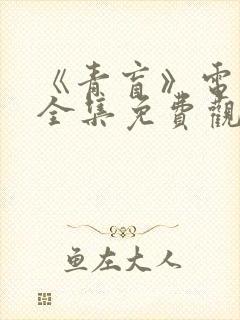 《青盲》電
全集免費觀
鱼左大人